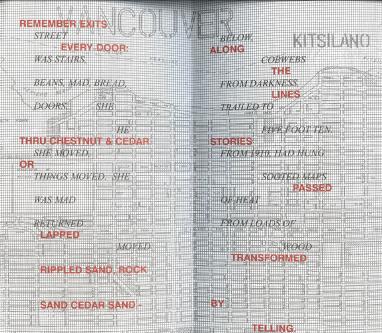 VANCOUVER
REMEMBER EXITS
STREET
EVERY DOOR:
WAS STAIRS,
BEANS, MAD, BREAD,
DOORS, SHE
HE
THRU CHESTNUT & CEDAR
SHE MOVED,
OR
THINGS MOVED. SHE
WAS MAD
RETURNED
LAPPED
MOVED
RIPPLED SAND, ROCK
SAND CEDAR SAND -
KITSILANO
BELOW,
ALONG
COBWEBS
THE
FROM DARKNESS,
LINES
TRAILED TO
FIVE FOOT TEN,
STORIES
FROM 1910, HAD HUNG
SOOTED MAPS
PASSED
OF HEAT
FROM LOADS OF
WOOD
TRANSFORMED
BY
TELLING.